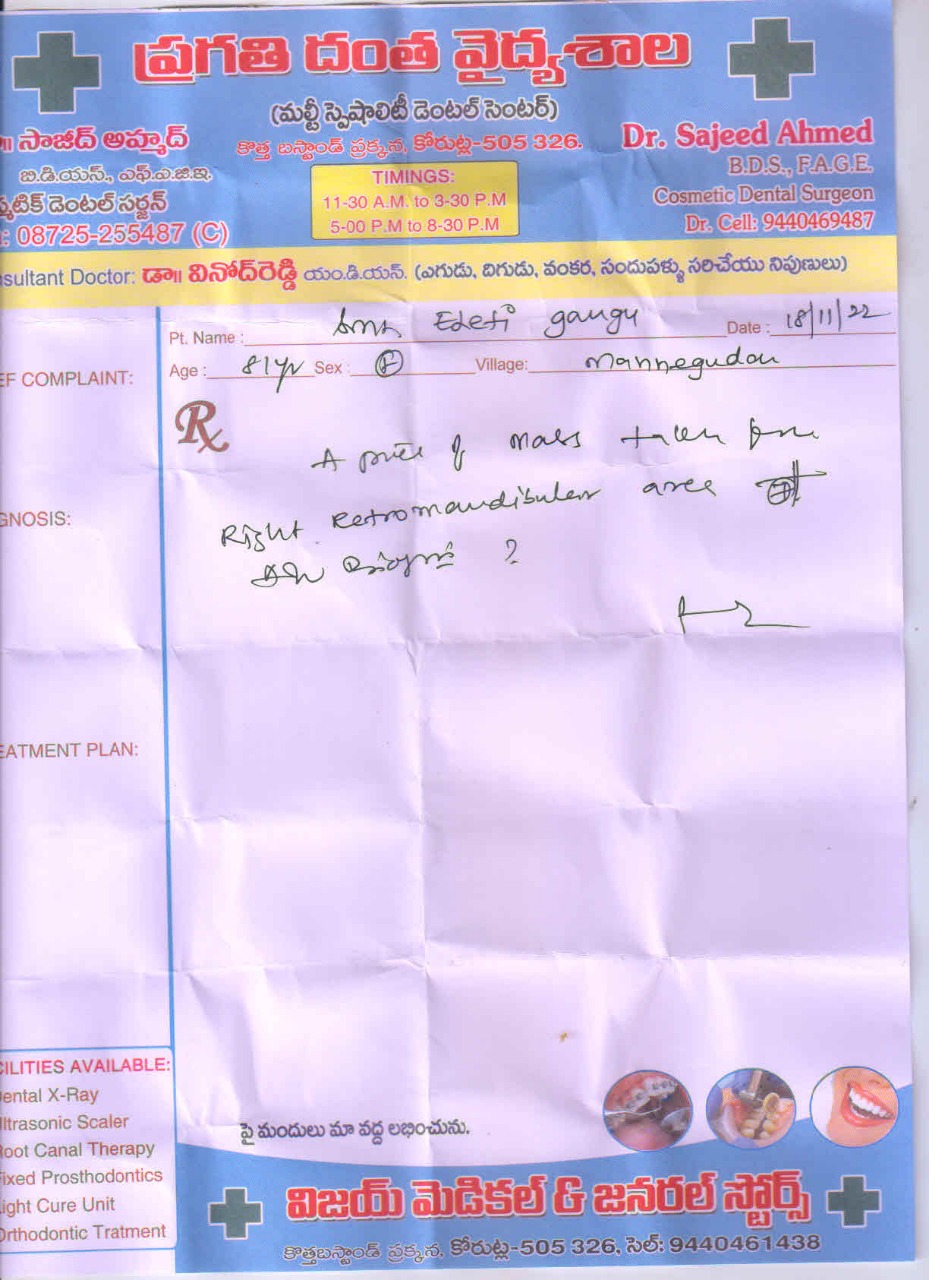 ప్రగతి దంత వైద్యశాల
(మల్టీ స్పెషాలిటీ డెంటల్ సెంటర్)
సాజీద్ అహ్మద్
కొత్త బస్టాండ్ ప్రక్కన, కోరుట్ల-505 326.
Dr. Sajeed Ahmed
బి.డి.యస్., ఎఫ్.ఎ.జి.ఇ.
B.D.S., F.A.G.E.
TIMINGS:
11-30 A.M. to 3-30 P.M
5-00 P.M to 8-30 P.M
డెంటల్ సర్జన్
Cosmetic Dental Surgeon
: 08725-255487 (C)
Dr. Cell: 9440469487
Doctor: డా॥ వినోద్‌రెడ్డి యం.డి.యస్. (ఎగుడు, దిగుడు, వంకర, సందుపళ్ళు సరిచేయు నిపుణులు)
Pt. Name : gangu Date : 18/11/22
COMPLAINT:
Age : 81yr Sex : F Village:
Rx
A of mass taken from
Right Retromandibular area
?
TREATMENT PLAN:
FACILITIES AVAILABLE:
Dental X-Ray
Ultrasonic Scaler
Root Canal Therapy
Fixed Prosthodontics
Light Cure Unit
Orthodontic Tratment
పై మందులు మా వద్ద లభించును.
విజయ్ మెడికల్ & జనరల్ స్టోర్స్
కొత్తబస్టాండ్ ప్రక్కన, కోరుట్ల-505 326, సెల్: 9440461438